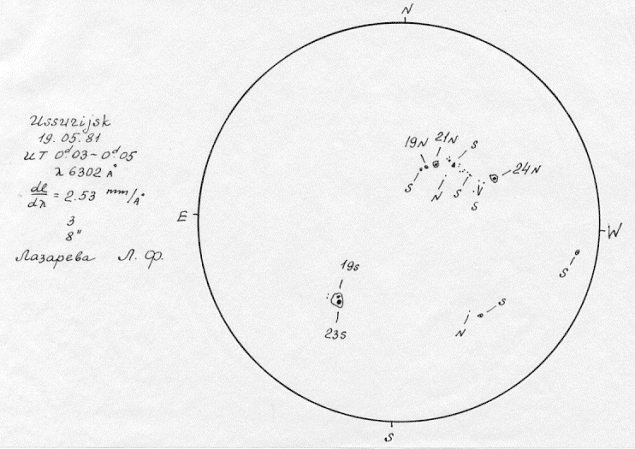 N
Ussurijsk
19.05.81
UT 0ᵈ03–0ᵈ05
λ 6302 A°
dl/dλ = 2.53 mm/A°
3
8"
Лазарева Л. Ф.
19N 21N S
S N S N S 24N
E
W
S
19s
23s
S
N
S